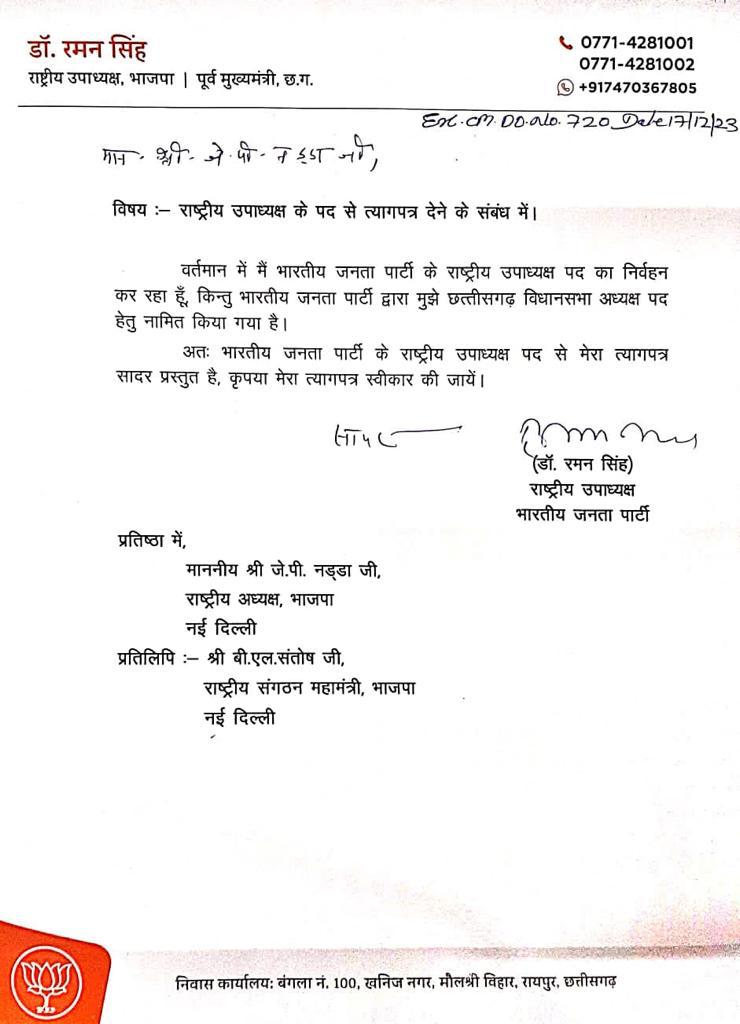 डॉ. रमन सिंह
राष्ट्रीय उपाध्यक्ष, भाजपा | पूर्व मुख्यमंत्री, छ.ग.
0771-4281001
0771-4281002
+917470367805
Ex. CM. DO. No. 720 Date 17/12/23
मान. श्री. जे. पी. नड्डा जी,
विषय :– राष्ट्रीय उपाध्यक्ष के पद से त्यागपत्र देने के संबंध में।
वर्तमान में मैं भारतीय जनता पार्टी के राष्ट्रीय उपाध्यक्ष पद का निर्वहन
कर रहा हूँ, किन्तु भारतीय जनता पार्टी द्वारा मुझे छत्तीसगढ़ विधानसभा अध्यक्ष पद
हेतु नामित किया गया है।
अतः भारतीय जनता पार्टी के राष्ट्रीय उपाध्यक्ष पद से मेरा त्यागपत्र
सादर प्रस्तुत है, कृपया मेरा त्यागपत्र स्वीकार की जायें।
(डॉ. रमन सिंह)
राष्ट्रीय उपाध्यक्ष
भारतीय जनता पार्टी
प्रतिष्ठा में,
माननीय श्री जे.पी. नड्डा जी,
राष्ट्रीय अध्यक्ष, भाजपा
नई दिल्ली
प्रतिलिपि :– श्री बी.एल.संतोष जी,
राष्ट्रीय संगठन महामंत्री, भाजपा
नई दिल्ली
निवास कार्यालय: बंगला नं. 100, खनिज नगर, मौलश्री विहार, रायपुर, छत्तीसगढ़